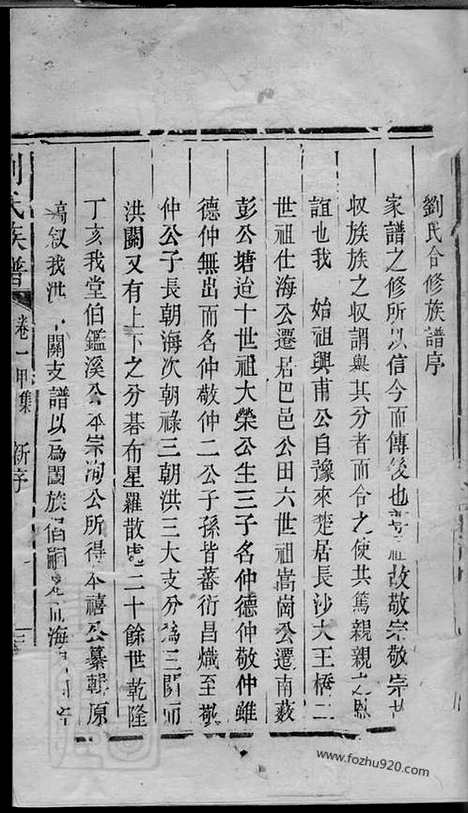 劉氏合修族譜序
家譜之修所以信今而傳後也尊祖故敬宗敬宗故
収族族之収謂與其分者而合之使共篤親親之恩
誼也我　始祖興甫公自豫來楚居長沙大王橋二
世祖仕海公遷居巴邑公田六世祖嵩崗公遷南薮
彭公塘迨十世祖大榮公生三子名仲德仲敬仲雖
德仲無出而名仲敬仲二公子孫皆蕃衍昌熾至敬
仲公子長朝海次朝祿三朝洪三大支分為三関而
洪関又有上下之分碁布星羅散處二十餘世乾隆
丁亥我堂伯鑑溪公本宗洵公所得本禧公纂輯原
稿叙我洪下関支譜以為闔族倡嗣是
海
劉氏族譜
卷一甲集
新序
www.fozhu920.com